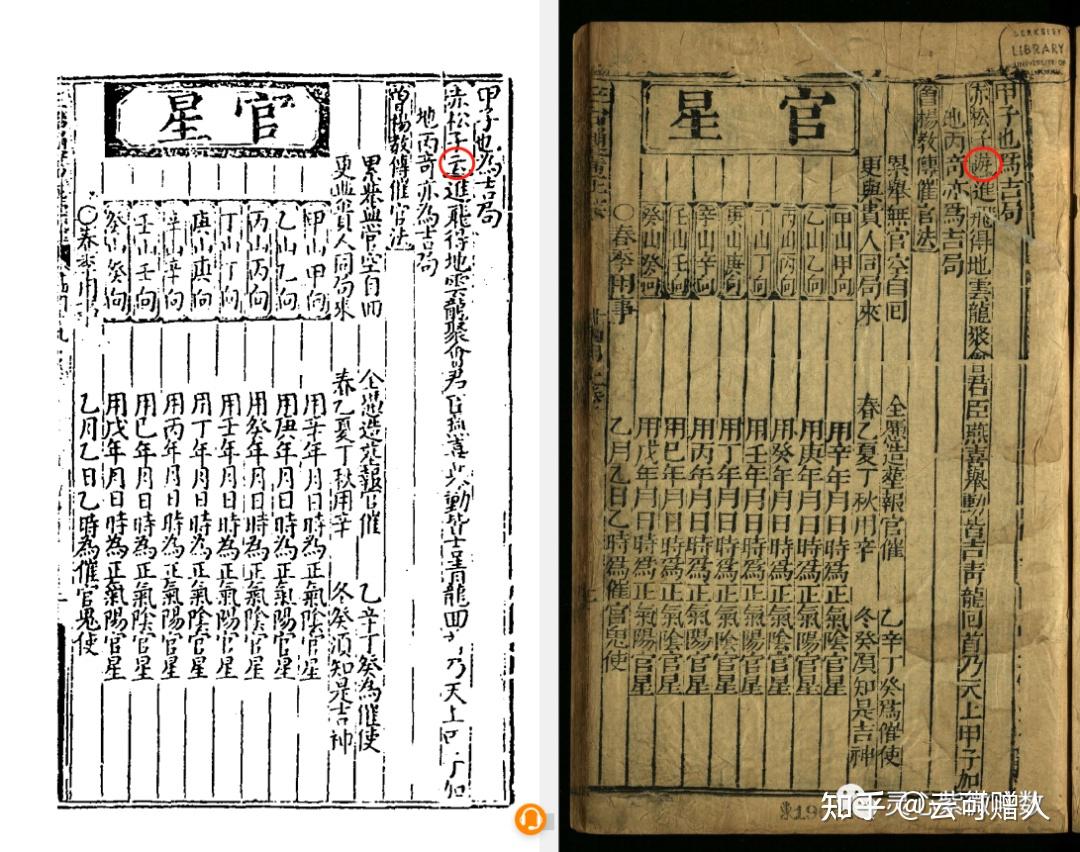 甲子也為吉局
赤松子云進飛得地雲龍聚會君臣燕喜举動皆吉青龍回乃天上加
地丙奇亦為吉局
曾楊教傳催官法
累举無官空自回 全憑造葬報官催 乙辛丁癸為催使
更與貴人同局來 春乙夏丁秋用辛 冬癸須知是吉神
官星
甲山甲向 用辛年月日時為正氣陰官星
乙山乙向 用庚年月日時為正氣陽官星
丙山丙向 用癸年月日時為正氣陰官星
丁山丁向 用壬年月日時為正氣陽官星
庚山庚向 用丁年月日時為正氣陰官星
辛山辛向 用丙年月日時為正氣陽官星
壬山壬向 用巳年月日時為正氣陰官星
癸山癸向 用戊年月日時為正氣陽官星
○春季用 乙月乙日乙時為催官鬼使
甲子也爲吉局
赤松子遊進飛得地雲龍聚會君臣燕喜舉動皆吉青龍回首乃天上甲子加
地丙奇亦爲吉局
曾楊教傳催官法
累舉無官空自回 全憑造葬報官催 乙辛丁癸爲催使
更與貴人同局來 春乙夏丁秋用辛 冬癸須知是吉神
官星
甲山甲向 用辛年月日時爲正氣陰官星
乙山乙向 用庚年月日時爲正氣陽官星
丙山丙向 用癸年月日時爲正氣陰官星
丁山丁向 用壬年月日時爲正氣陽官星
庚山庚向 用丁年月日時爲正氣陰官星
辛山辛向 用丙年月日時爲正氣陽官星
壬山壬向 用巳年月日時爲正氣陰官星
癸山癸向 用戊年月日時爲正氣陽官星
○春季用事 乙月乙日乙時爲催官鬼使
BERKELEY
LIBRARY
UNIVERSITY OF
知乎 @云可赠人